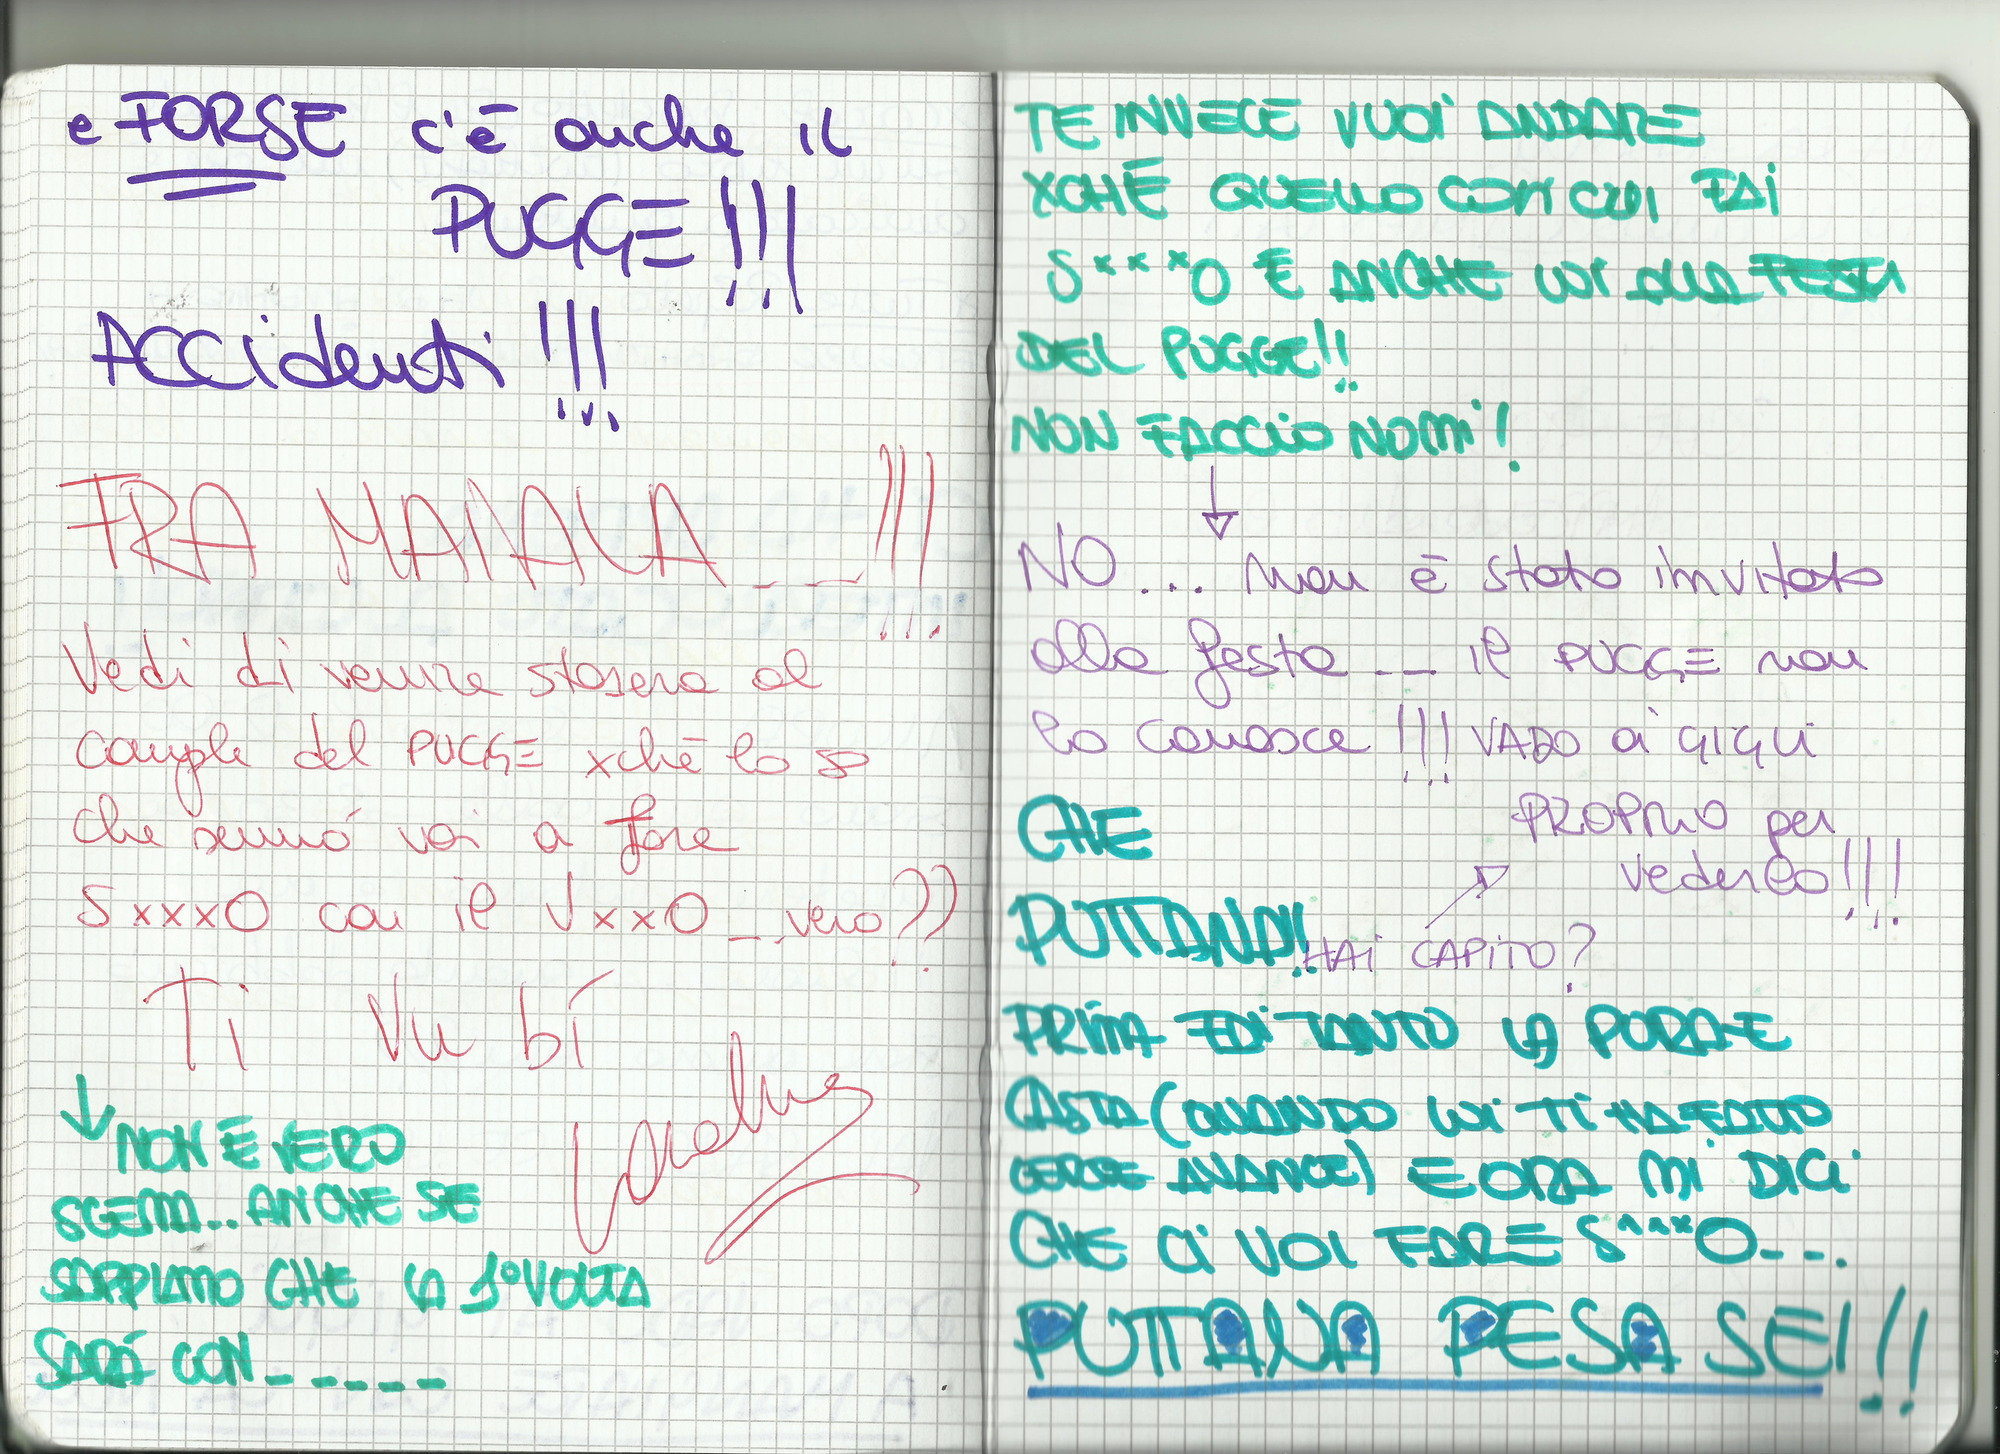 e FORSE c'è anche il
PUGGE!!!
Accidenti!!!
FRA MAIALA__!!!
Vedi di venire stasera al
comple del PUGGE xchè lo so
che sennó vai a fare
SxxxO con il VxxO__vero??
Ti Vu bí
↓ NON È VERO
SCEMA.. ANCHE SE
SAPPIAMO CHE LA 1º VOLTA
SARÁ CON_____
TE INVECE VUOI ANDARE
XCHÈ QUELLO CON CUI FAI
S***O È ANCHE LUI ALLA FESTA
DEL PUGGE!!
NON FACCIO NOMI!
↓
NO... non è stato invitato
alla festa __ il PUGGE non
lo conosce!!! VADO ai GIGLI
PROPRIO per
vederlo!!!
CHE
PUTTANA!!
HAI CAPITO?
PRIMA FAI TANTO LA PURA E
CASTA (QUANDO LUI TI HA FATTO
CERTE AVANCE) E ORA MI DICI
CHE CI VOI FARE S***O---.
PUTTANA PESA SEI!!!